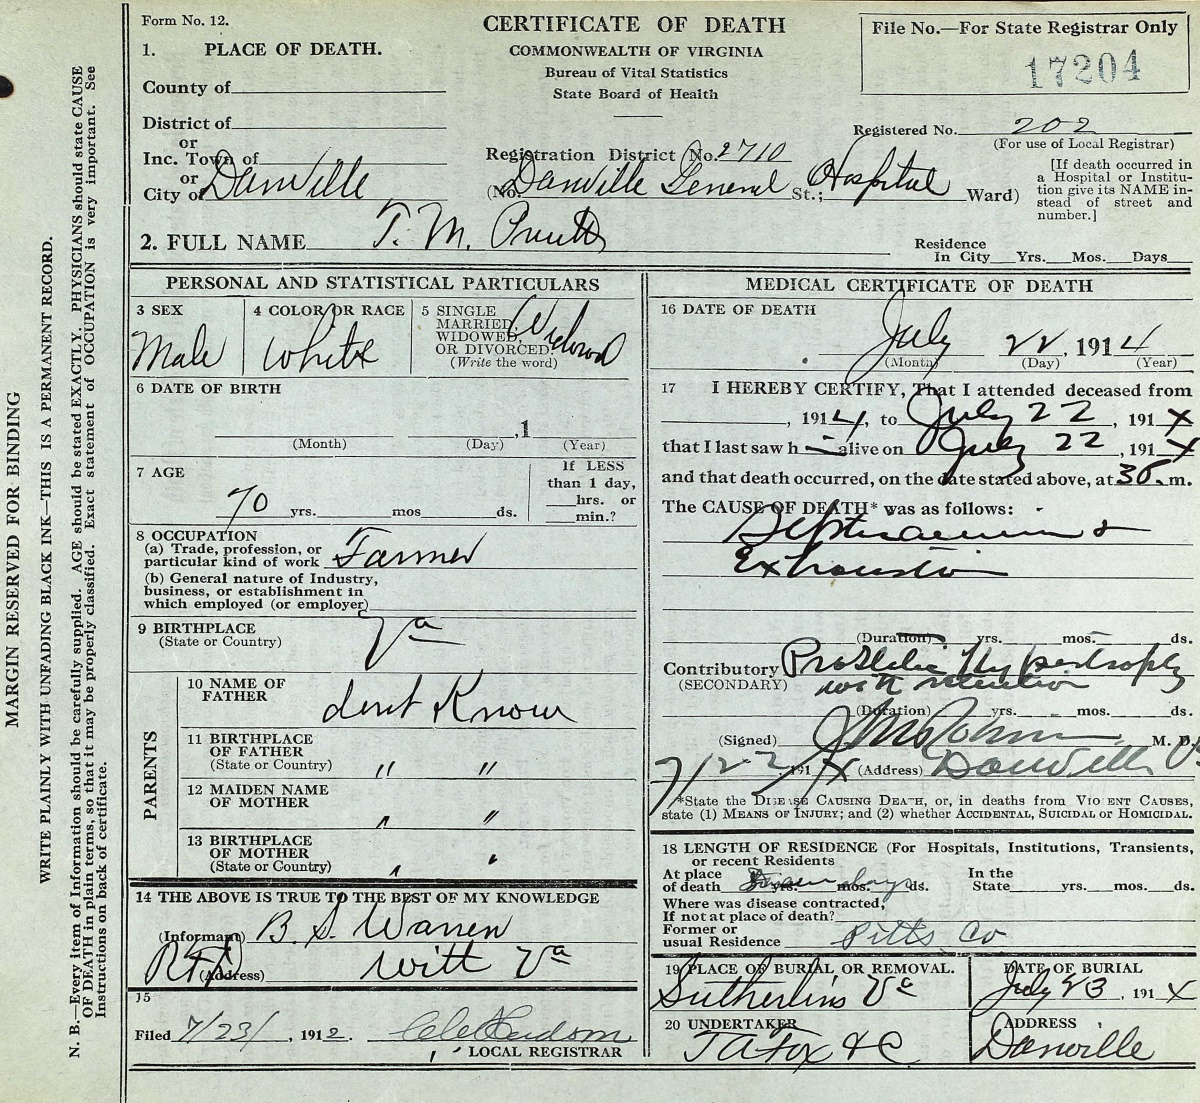 Form No. 12.
CERTIFICATE OF DEATH
COMMONWEALTH OF VIRGINIA
Bureau of Vital Statistics
State Board of Health
File No.—For State Registrar Only
17204
1. PLACE OF DEATH.
County of
District of
or
Inc. Town of
or
City of Danville
Registration District No. 2710
(No. Danville General St.; Hospital Ward)
Registered No. 202
(For use of Local Registrar)
[If death occurred in
a Hospital or Institu-
tion give its NAME in-
stead of street and
number.]
2. FULL NAME T. M. Pruitt
Residence
In City Yrs. Mos. Days
PERSONAL AND STATISTICAL PARTICULARS
3 SEX
Male
4 COLOR OR RACE
White
5 SINGLE
MARRIED,
WIDOWED,
OR DIVORCED.
(Write the word)
Widowed
6 DATE OF BIRTH
, 1
(Month) (Day) (Year)
7 AGE
70 yrs. mos ds.
If LESS
than 1 day,
hrs. or
min.?
8 OCCUPATION
(a) Trade, profession, or
particular kind of work Farmer
(b) General nature of Industry,
business, or establishment in
which employed (or employer)
9 BIRTHPLACE
(State or Country) Va
PARENTS
10 NAME OF
FATHER dont Know
11 BIRTHPLACE
OF FATHER
(State or Country) " "
12 MAIDEN NAME
OF MOTHER " "
13 BIRTHPLACE
OF MOTHER
(State or Country) " "
14 THE ABOVE IS TRUE TO THE BEST OF MY KNOWLEDGE
(Informant) B. S. Warren
RFD (Address) Witt Va
15
Filed 7/23/, 1912.
LOCAL REGISTRAR
MEDICAL CERTIFICATE OF DEATH
16 DATE OF DEATH
July 22, 1914
(Month) (Day) (Year)
17 I HEREBY CERTIFY, That I attended deceased from
, 1914, to July 22, 191X
that I last saw h alive on July 22, 191X
and that death occurred, on the date stated above, at m.
The CAUSE OF DEATH* was as follows:
Septicaemia &
Exhaustion
(Duration) yrs. mos. ds.
Contributory Prostatic Hypertrophy
(SECONDARY) with retention
(Duration) yrs. mos. ds.
(Signed) M. D.
7/22, 191X (Address) Danville Va
*State the DISEASE CAUSING DEATH, or, in deaths from VIOLENT CAUSES,
state (1) MEANS OF INJURY; and (2) whether ACCIDENTAL, SUICIDAL OR HOMICIDAL.
18 LENGTH OF RESIDENCE (For Hospitals, Institutions, Transients,
or recent Residents
At place
of death yrs. mos. days ds.
In the
State yrs. mos. ds.
Where was disease contracted,
If not at place of death?
Former or
usual Residence Pitts. Co
19 PLACE OF BURIAL OR REMOVAL.
Sutherlins Va
DATE OF BURIAL
July 23, 191X
20 UNDERTAKER
T A Fox & C
ADDRESS
Danville
MARGIN RESERVED FOR BINDING
WRITE PLAINLY WITH UNFADING BLACK INK—THIS IS A PERMANENT RECORD.
N. B.—Every item of Information should be carefully supplied. AGE should be stated EXACTLY. PHYSICIANS should state CAUSE
OF DEATH in plain terms, so that it may be properly classified. Exact statement of OCCUPATION is very important. See
Instructions on back of certificate.